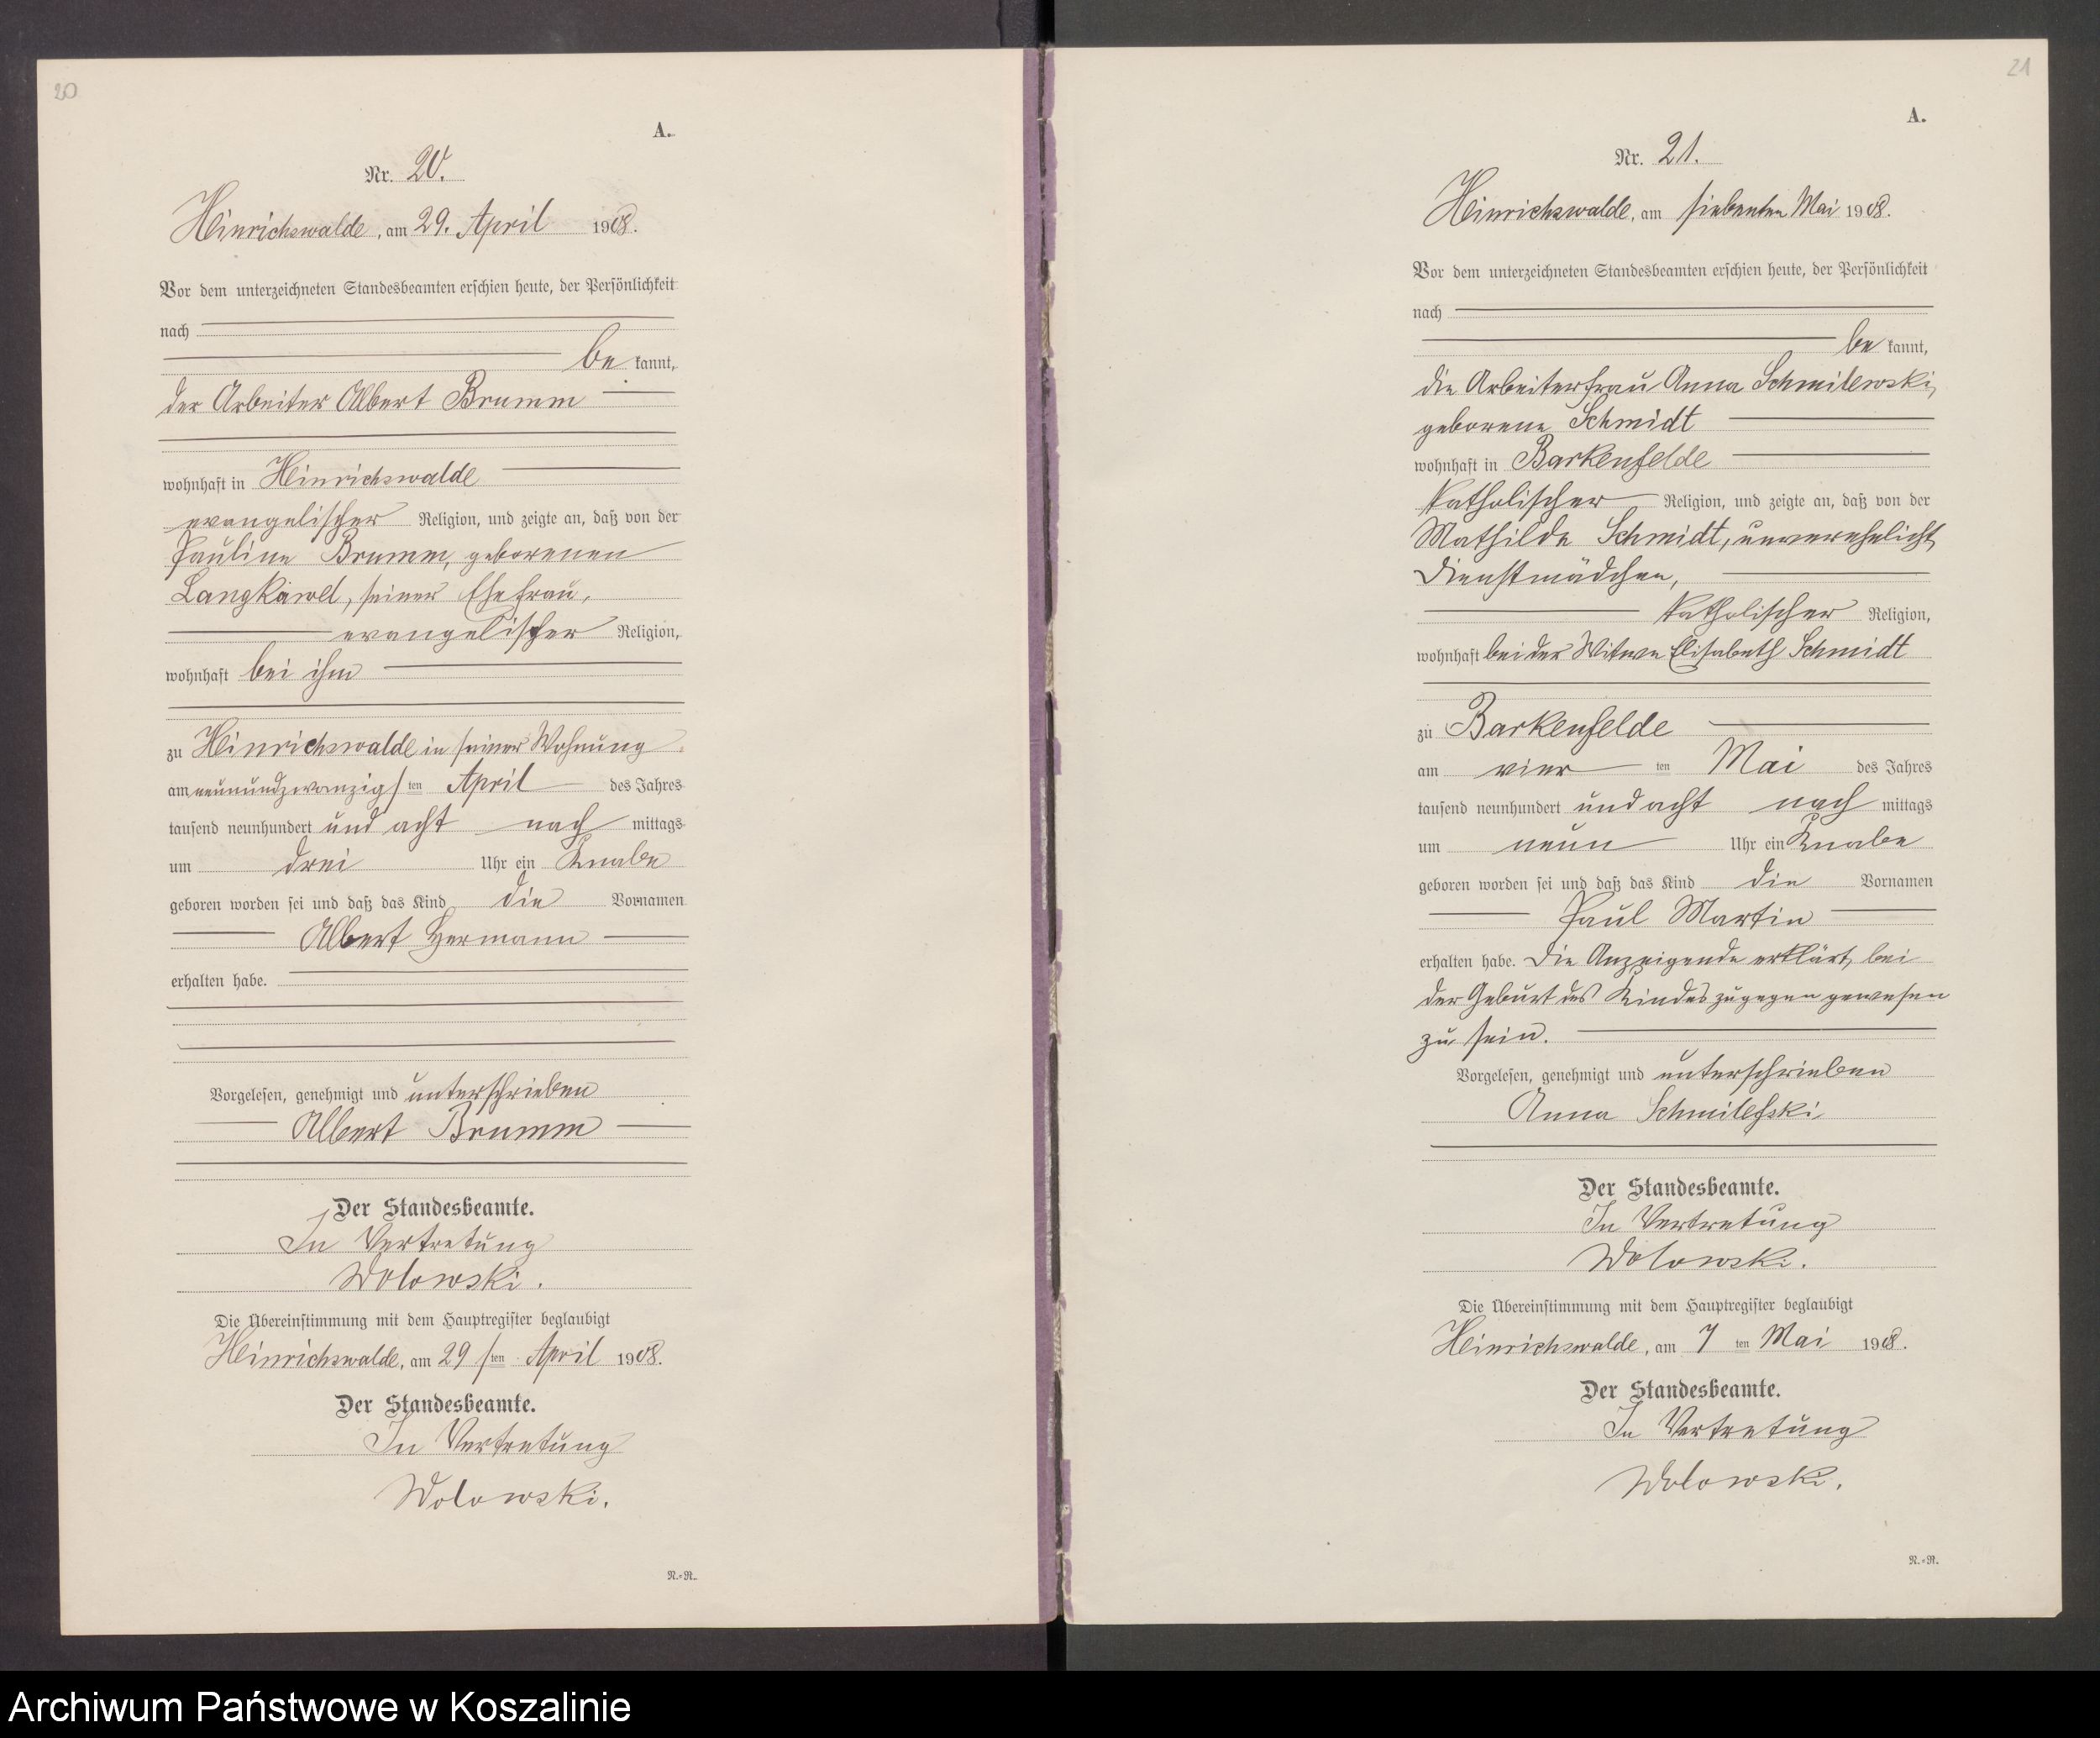 20
A.
Nr. 20.
Heinrichswalde, am 29. April 1908.
Vor dem unterzeichneten Standesbeamten erschien heute, der Persönlichkeit
nach
be kannt,
der Arbeiter Albert Brumm
wohnhaft in Heinrichswalde
evangelischer Religion, und zeigte an, daß von der
Pauline Brumm, geborenen
Langkawel, seiner Ehefrau,
evangelischer Religion,
wohnhaft bei ihm
zu Heinrichswalde in seiner Wohnung
am neunundzwanzigsten April des Jahres
tausend neunhundert und acht nach mittags
um drei Uhr ein Knabe
geboren worden sei und daß das Kind die Vornamen
Albert Hermann
erhalten habe.
Vorgelesen, genehmigt und unterschrieben
Albert Brumm
Der Standesbeamte.
In Vertretung
Wolowski.
Die Übereinstimmung mit dem Hauptregister beglaubigt
Heinrichswalde, am 29 sten April 1908.
Der Standesbeamte.
In Vertretung
Wolowski.
N.=R.
21
A.
Nr. 21.
Heinrichswalde, am siebenten Mai 1908.
Vor dem unterzeichneten Standesbeamten erschien heute, der Persönlichkeit
nach
be kannt,
die Arbeiterfrau Anna Schmilewski,
geborene Schmidt
wohnhaft in Barkenfelde
katholischer Religion, und zeigte an, daß von der
Mathilde Schmidt, unverehelicht,
Dienstmädchen,
katholischer Religion,
wohnhaft bei der Witwe Elisabeth Schmidt
zu Barkenfelde
am vier ten Mai des Jahres
tausend neunhundert und acht nach mittags
um neun Uhr ein Knabe
geboren worden sei und daß das Kind die Vornamen
Paul Martin
erhalten habe. Die Anzeigende erklärt, bei
der Geburt des Kindes zugegen gewesen
zu sein.
Vorgelesen, genehmigt und unterschrieben
Anna Schmilefski
Der Standesbeamte.
In Vertretung
Wolowski.
Die Übereinstimmung mit dem Hauptregister beglaubigt
Heinrichswalde, am 7 ten Mai 1908.
Der Standesbeamte.
In Vertretung
Wolowski.
N.=R.
Archiwum Państwowe w Koszalinie